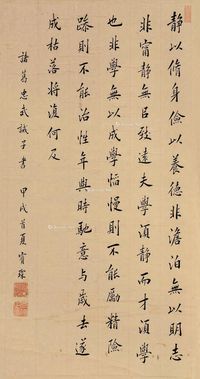 静以脩身儉以養德非澹泊無以明志
非甯静無㠯致遠夫學湏静而才湏學
也非學無以成學慆慢則不能勵精險
躁則不能治性年與時馳意與歲去遂
成枯落將復何及
諸葛忠武誡子書 甲戌首夏 寶琛